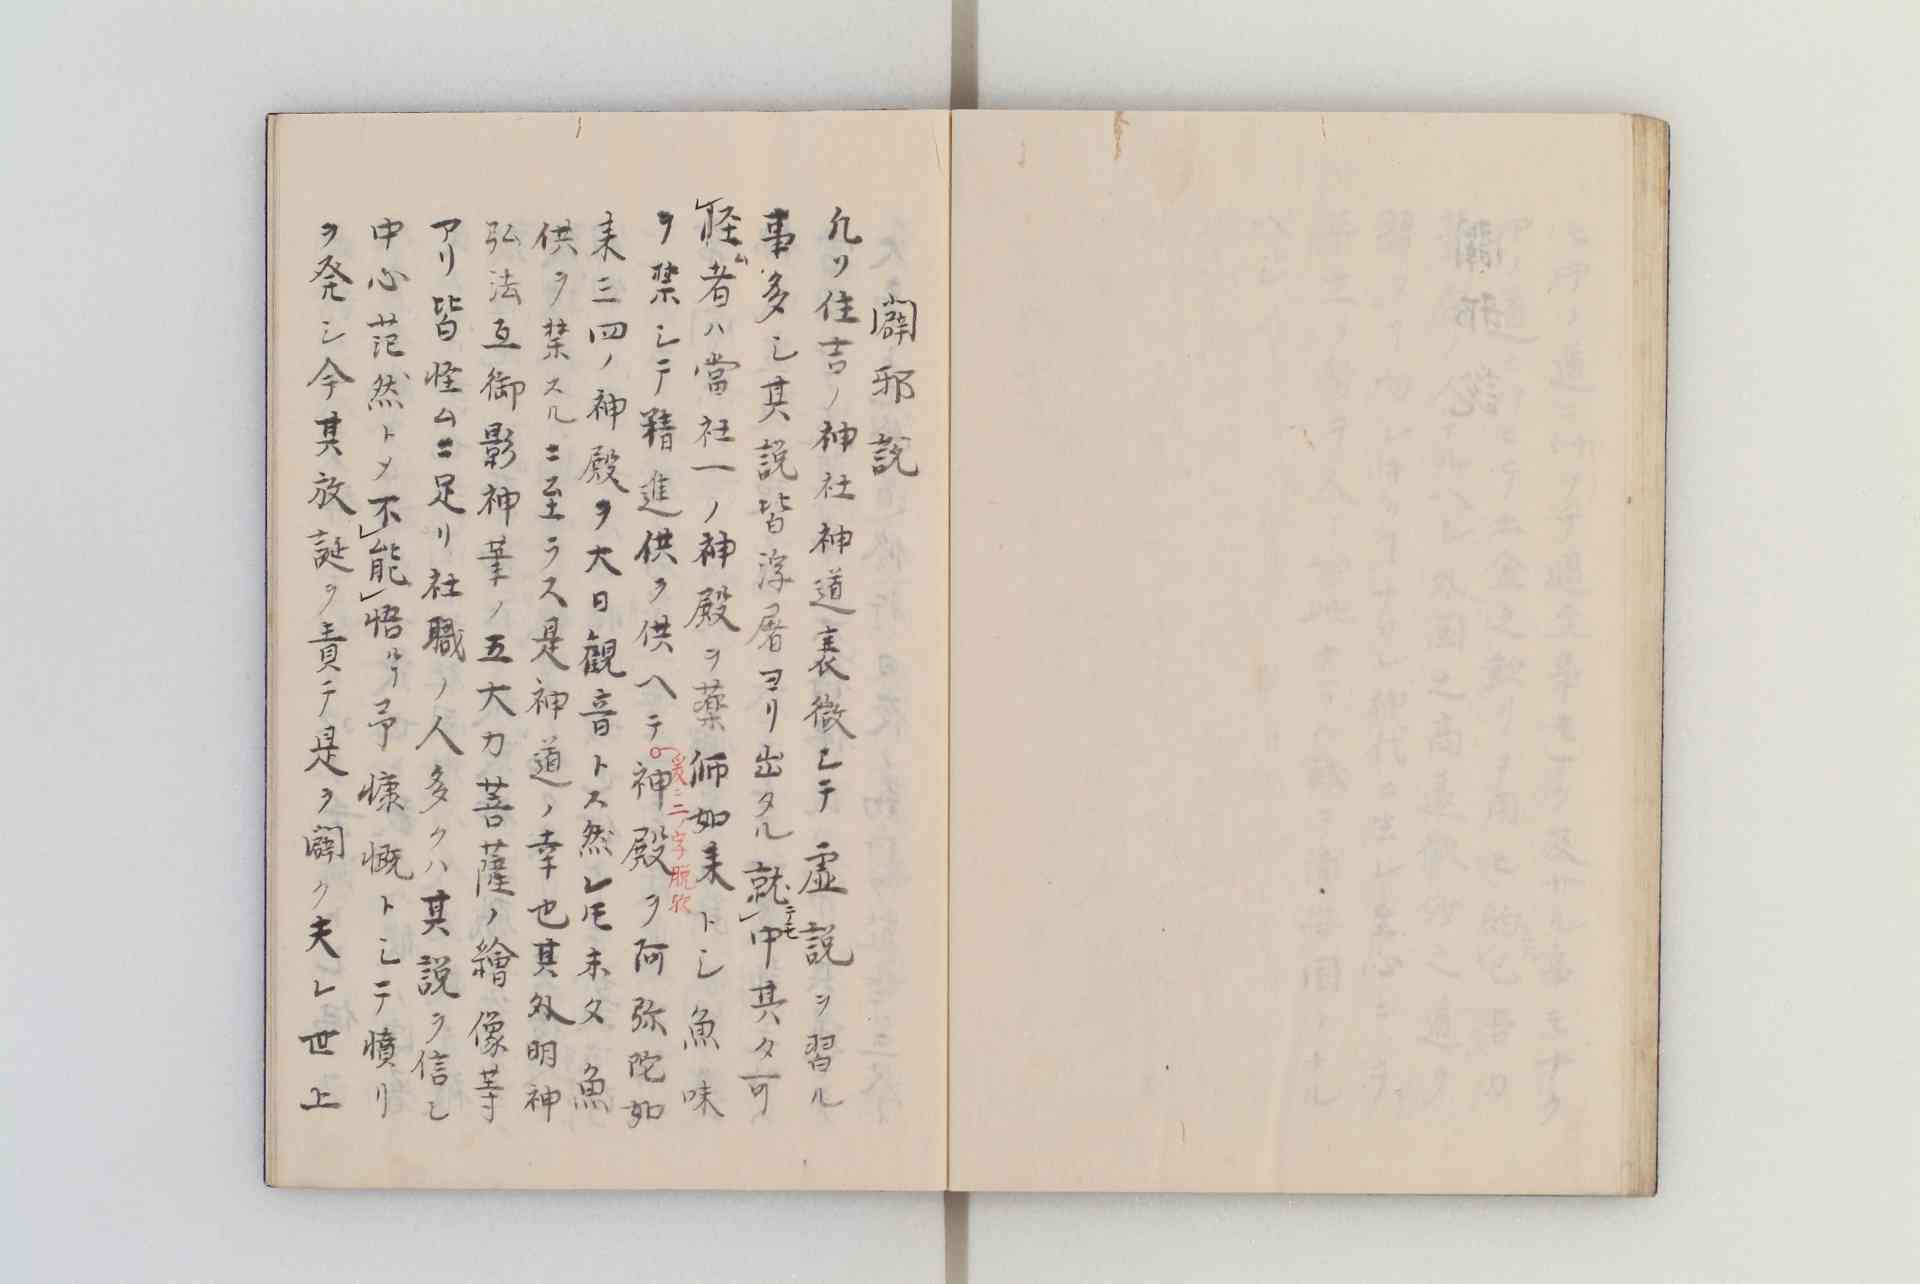 闢邪説
凡ソ住吉ノ神社神道衰微シテ虚説ヲ習ル
事多シ其説皆浮屠ヨリ出タル就中テモ其タ可
怪ム者ハ當社一ノ神殿ヲ薬師如来トシ魚味
ヲ禁シテ精進供ヲ供ヘテ神殿ヲ阿弥陀如
爰ニ二ノ字脱歟
来三四ノ神殿ヲ大日観音トス然レ𪜈未タ魚
供ヲ禁スルニ至ラス是神道ノ幸也其外明神
弘法互御影神筆ノ五大力菩薩ノ繪像等
アリ皆怪ムニ足リ社職ノ人多クハ其説ヲ信シ
中心茫然トメ不能悟ルヿ予慷慨トシテ憤リ
ヲ発シ今其放誕ヲ責テ是ヲ闢ク夫レ世上